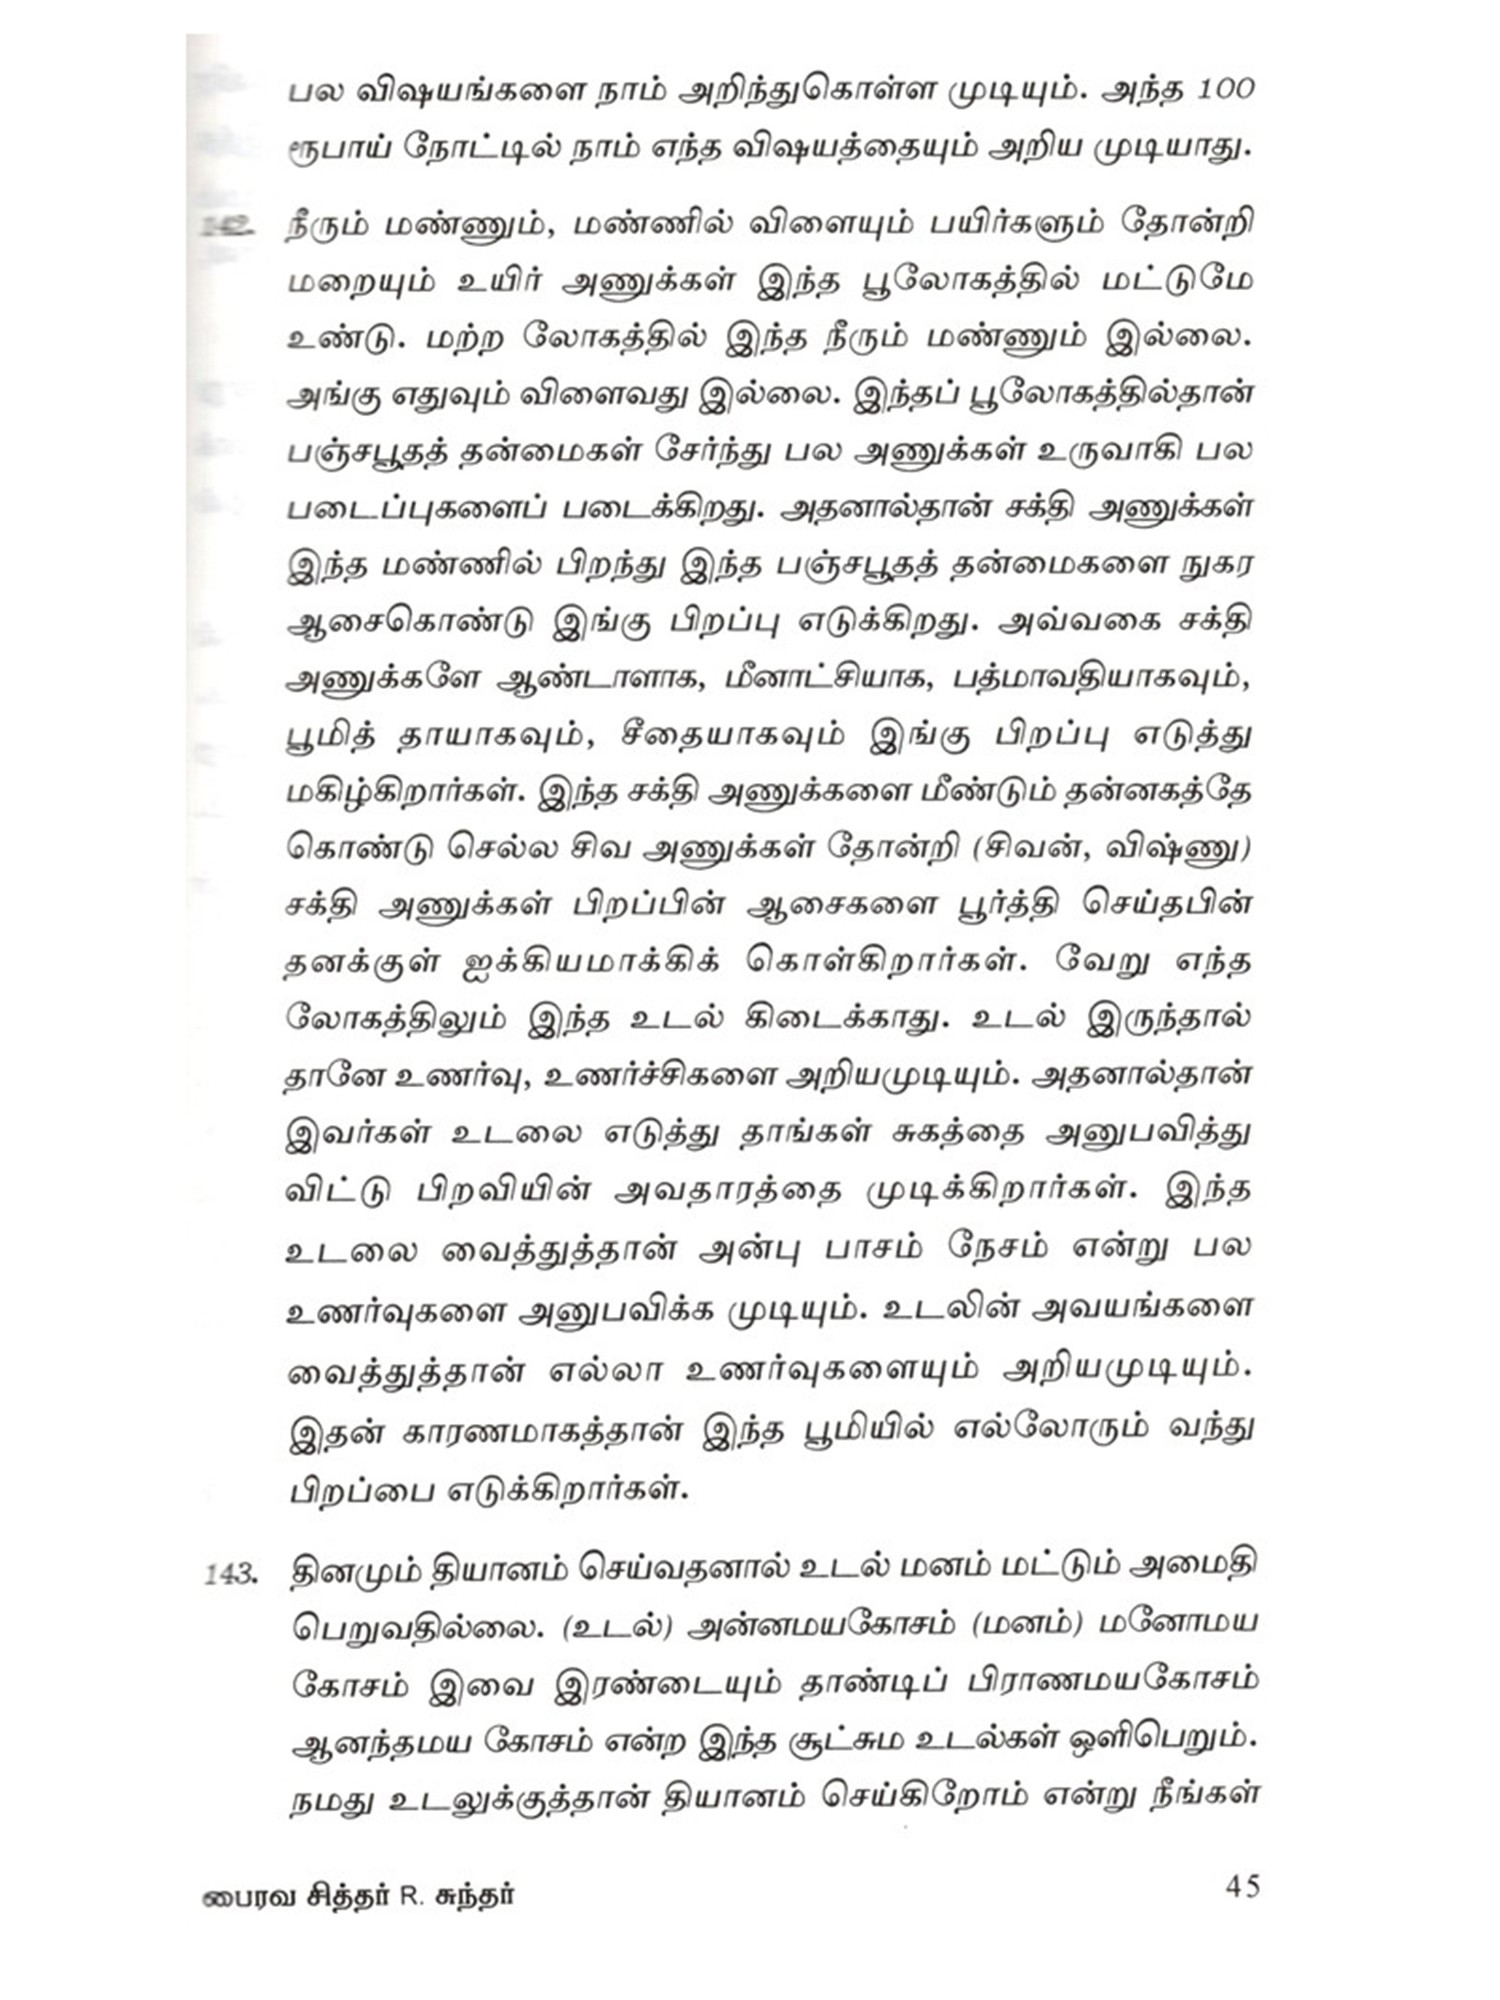 பல விஷயங்களை நாம் அறிந்துகொள்ள முடியும். அந்த 100
ரூபாய் நோட்டில் நாம் எந்த விஷயத்தையும் அறிய முடியாது.
142. நீரும் மண்ணும், மண்ணில் விளையும் பயிர்களும் தோன்றி
மறையும் உயிர் அணுக்கள் இந்த பூலோகத்தில் மட்டுமே
உண்டு. மற்ற லோகத்தில் இந்த நீரும் மண்ணும் இல்லை.
அங்கு எதுவும் விளைவது இல்லை. இந்தப் பூலோகத்தில்தான்
பஞ்சபூதத் தன்மைகள் சேர்ந்து பல அணுக்கள் உருவாகி பல
படைப்புகளைப் படைக்கிறது. அதனால்தான் சக்தி அணுக்கள்
இந்த மண்ணில் பிறந்து இந்த பஞ்சபூதத் தன்மைகளை நுகர
ஆசைகொண்டு இங்கு பிறப்பு எடுக்கிறது. அவ்வகை சக்தி
அணுக்களே ஆண்டாளாக, மீனாட்சியாக, பத்மாவதியாகவும்,
பூமித் தாயாகவும், சீதையாகவும் இங்கு பிறப்பு எடுத்து
மகிழ்கிறார்கள். இந்த சக்தி அணுக்களை மீண்டும் தன்னகத்தே
கொண்டு செல்ல சிவ அணுக்கள் தோன்றி (சிவன், விஷ்ணு)
சக்தி அணுக்கள் பிறப்பின் ஆசைகளை பூர்த்தி செய்தபின்
தனக்குள் ஐக்கியமாக்கிக் கொள்கிறார்கள். வேறு எந்த
லோகத்திலும் இந்த உடல் கிடைக்காது. உடல் இருந்தால்
தானே உணர்வு, உணர்ச்சிகளை அறியமுடியும். அதனால்தான்
இவர்கள் உடலை எடுத்து தாங்கள் சுகத்தை அனுபவித்து
விட்டு பிறவியின் அவதாரத்தை முடிக்கிறார்கள். இந்த
உடலை வைத்துத்தான் அன்பு பாசம் நேசம் என்று பல
உணர்வுகளை அனுபவிக்க முடியும். உடலின் அவயங்களை
வைத்துத்தான் எல்லா உணர்வுகளையும் அறியமுடியும்.
இதன் காரணமாகத்தான் இந்த பூமியில் எல்லோரும் வந்து
பிறப்பை எடுக்கிறார்கள்.
143. தினமும் தியானம் செய்வதனால் உடல் மனம் மட்டும் அமைதி
பெறுவதில்லை. (உடல்) அன்னமயகோசம் (மனம்) மனோமய
கோசம் இவை இரண்டையும் தாண்டிப் பிராணமயகோசம்
ஆனந்தமய கோசம் என்ற இந்த சூட்சும உடல்கள் ஒளிபெறும்.
நமது உடலுக்குத்தான் தியானம் செய்கிறோம் என்று நீங்கள்
பைரவ சித்தர் R. சுந்தர்
45